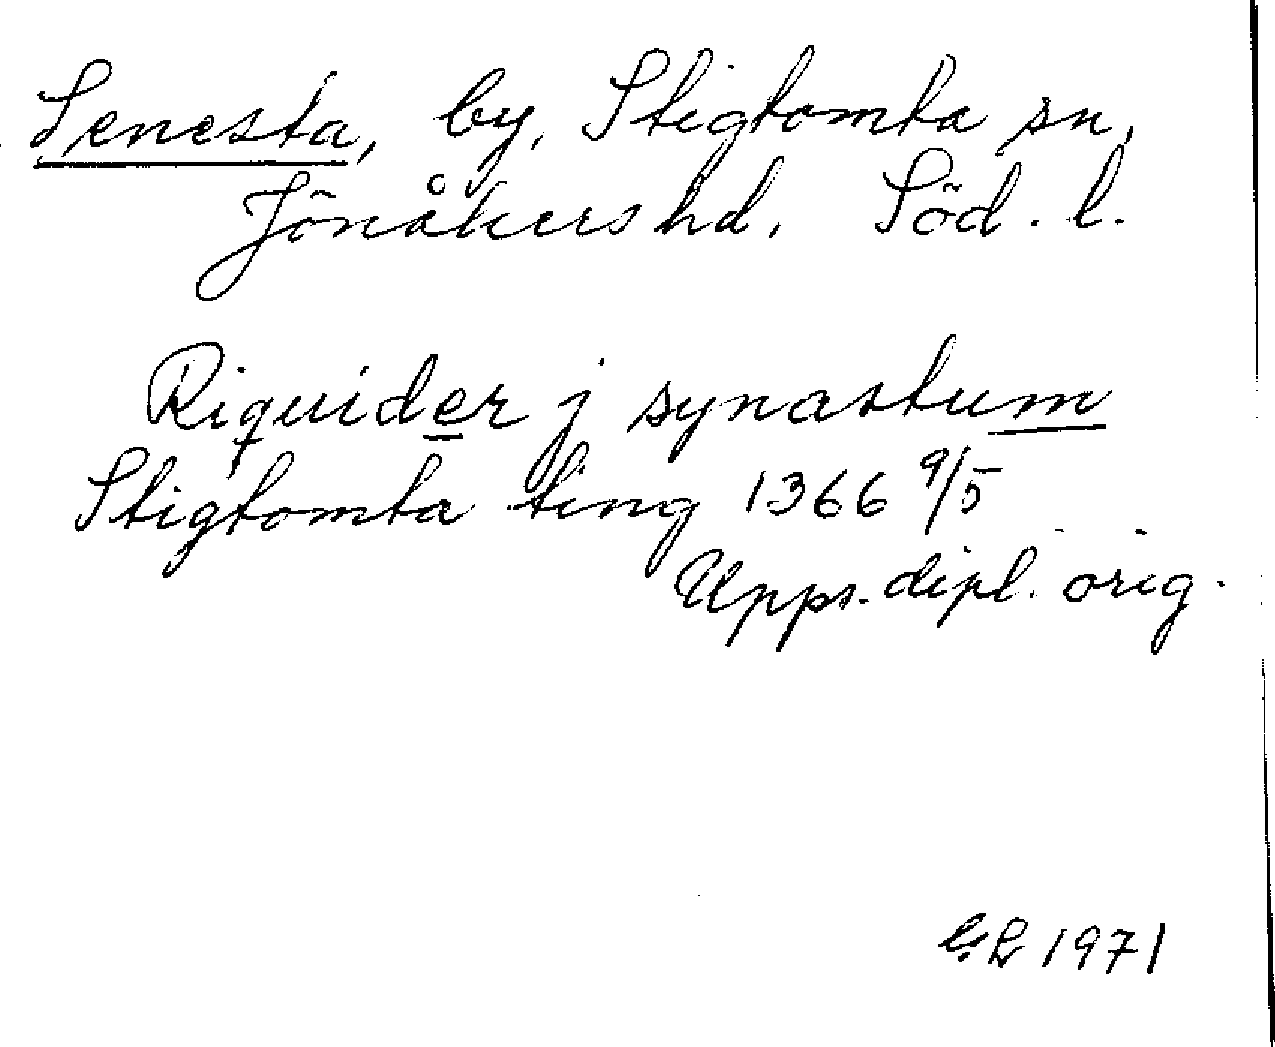 Senesta, by, Stigtomta sn,
Jönåkers hd. Söd. l.
Riquider j synastum
Stigtomta ting 1366 9/5
Upps. dipl. orig.
1971